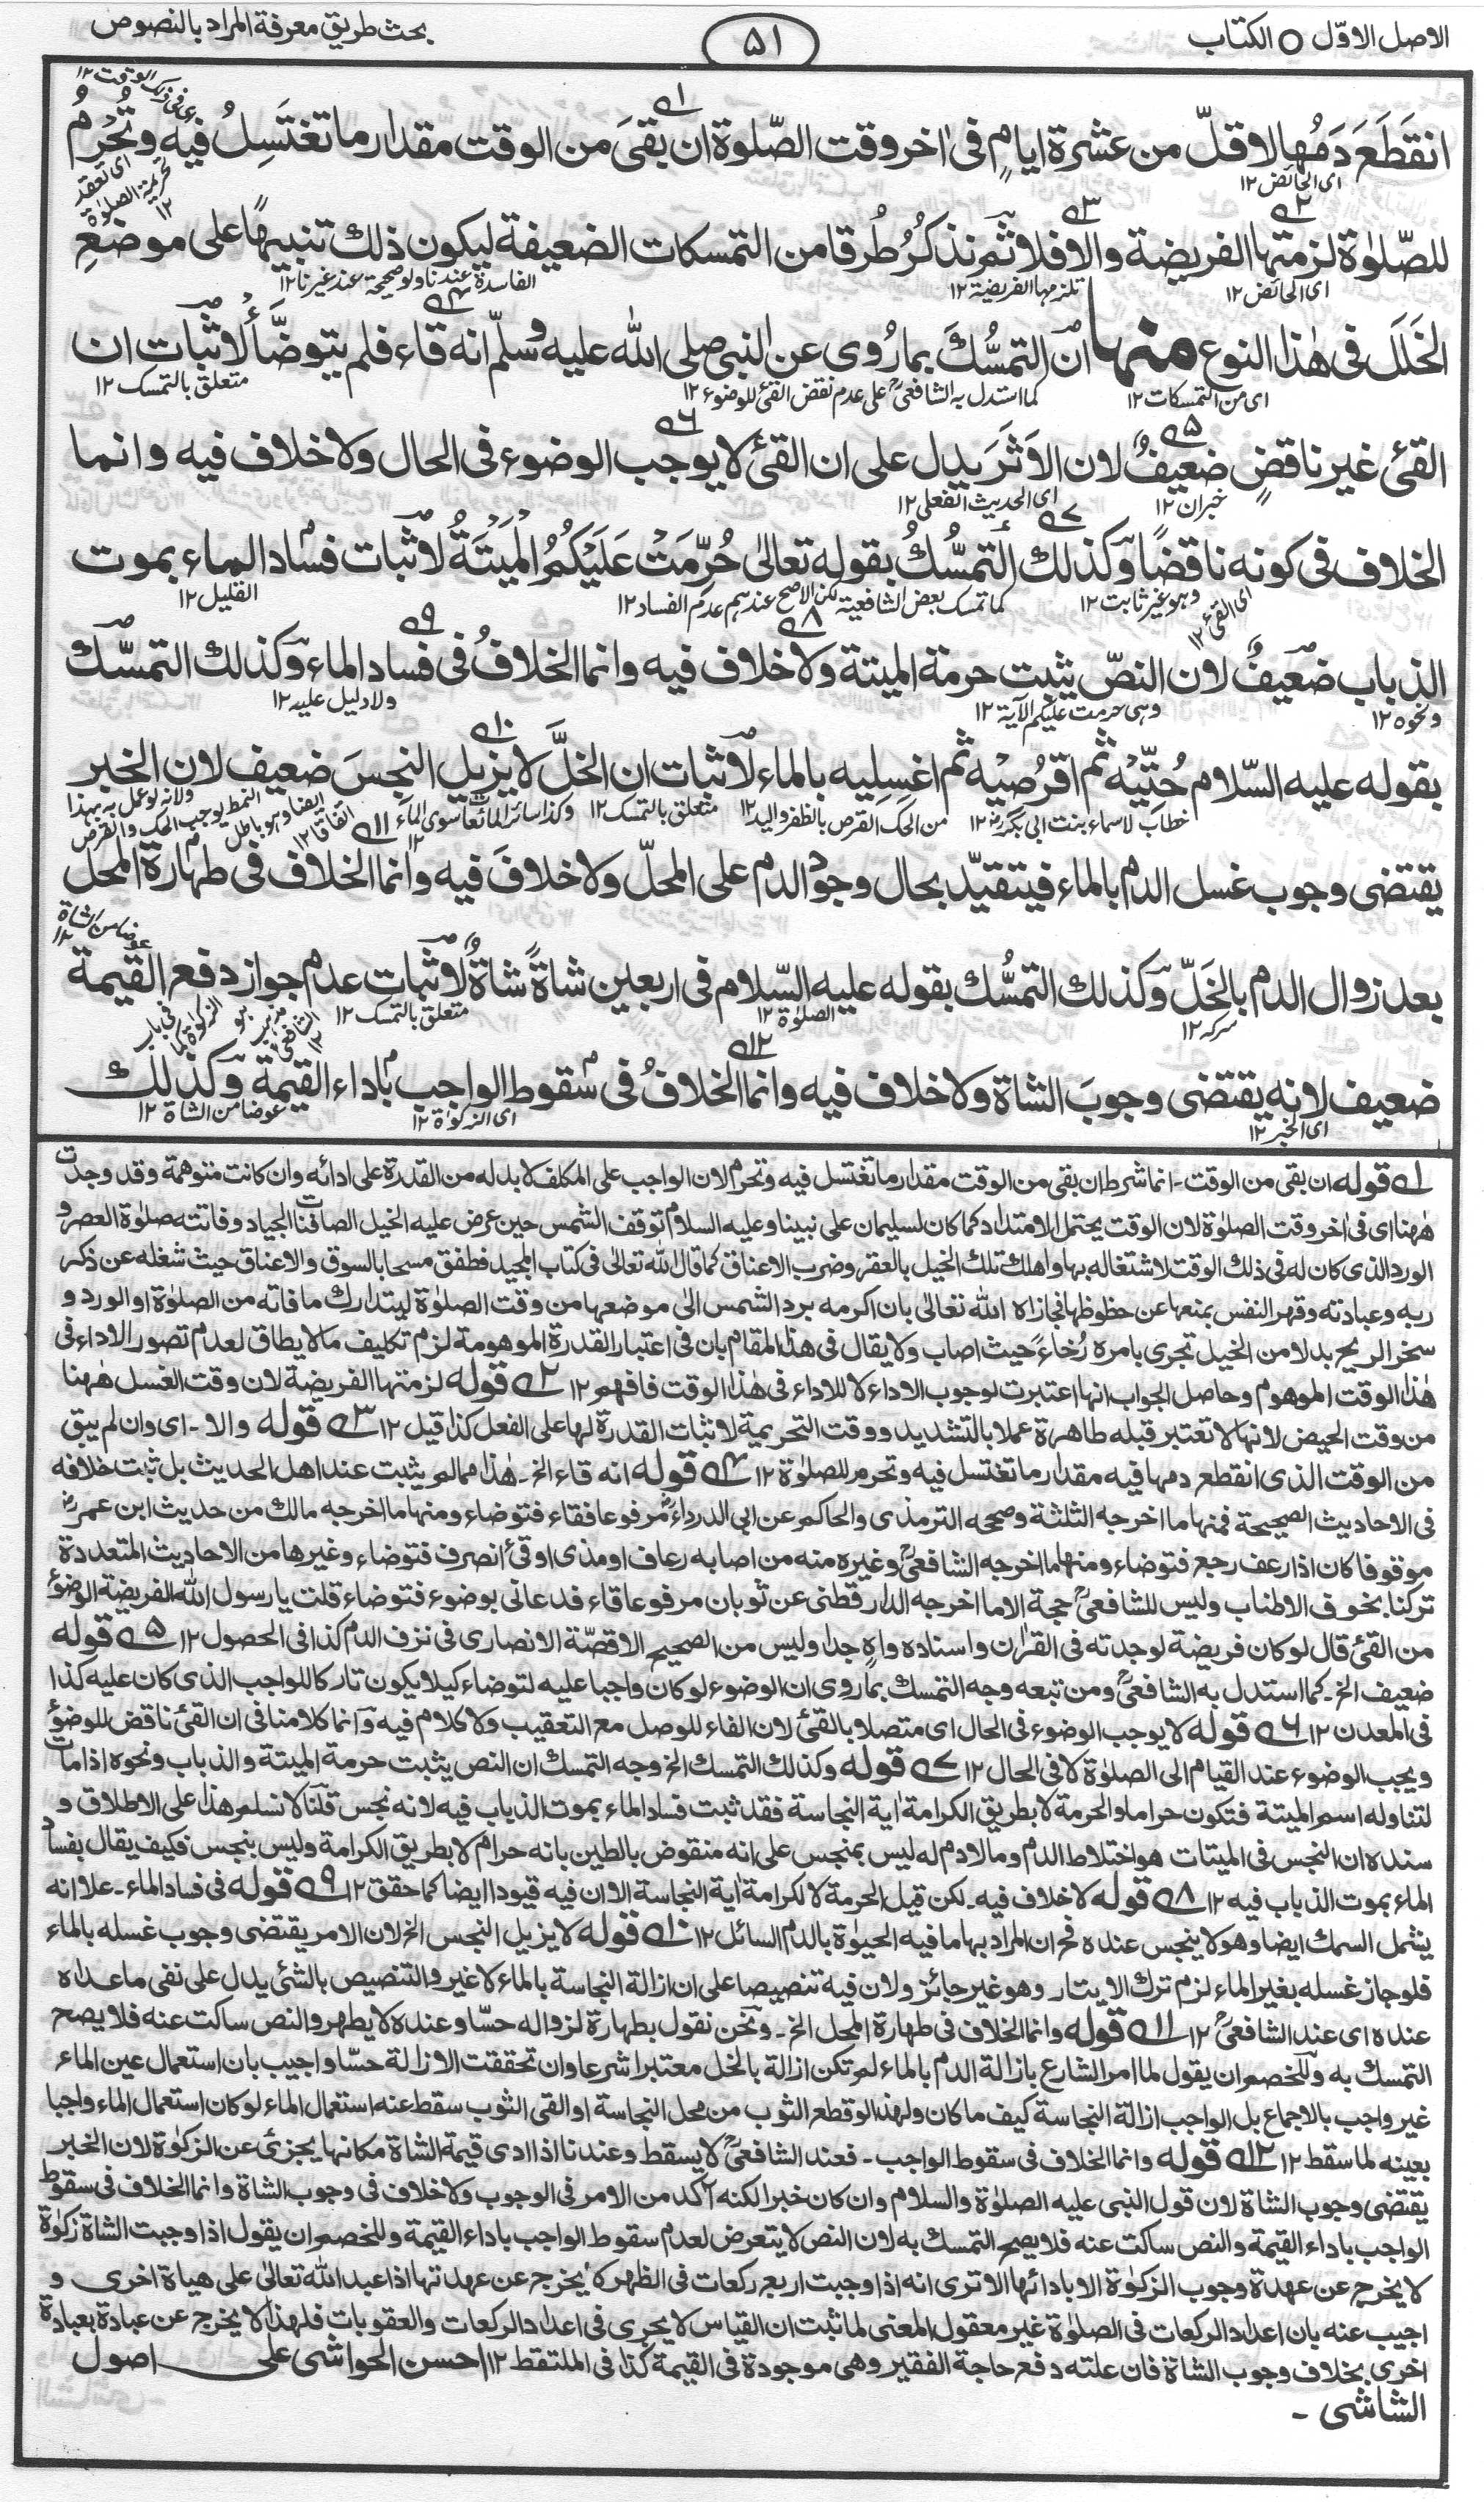 الاصل الاوّل ○ الكتاب
۵۱
بحث طريق معرفة المراد بالنصوص
انقَطَعَ دَمُها لاقلّ من عشرة ايامٍ فى اٰخر وقت الصّلوة ان بقىَ من الوقت مقدار ما تغتَسِلُ فيه وتُحْرِمُ
اى فى ذلك الوقت ١٢
اى الحائض ١٢
اى تعقد تحريمة الصلوٰة ١٢
للصّلوٰة لزمتها الفريضة والا فلا ثم نذكُرُ طُرقا من التمسكات الضعيفة ليكون ذلك تنبيهًا على موضعِ
اى الحائض ١٢
تلزمها الفريضة ١٢
الفاسدة عندنا ولو صحيحة عند غيرنا ١٢
الخَلَل فى هٰذا النوع منها ان التمسُّكَ بما رُوى عن النبى صلى الله عليه وسلّم انه قاء فلم يتوضَّأ لاثبات ان
اى من التمسكات ١٢
كما استدل به الشافعىؒ على عدم نقض القئ للوضوء ١٢
متعلق بالتمسك ١٢
القئ غير ناقضٍ ضعيفٌ لان الاَثَرَ يدل على ان القئ لا يوجب الوضوء فى الحال ولا خلاف فيه وانما
خبر ان ١٢
اى الحديث الفعلى ١٢
الخلاف فى كونه ناقضًا وكذلك التمسُّكُ بقوله تعالىٰ حُرِّمَتْ عَلَيْكُمُ الْمَيْتَةُ لاثبات فساد الماء بموت
اى القئ ١٢
وهو غير ثابت ١٢
كما تمسك بعض الشافعية لكن الاصح عندهم عدم الفساد ١٢
القليل ١٢
الذباب ضعيفٌ لان النصّ يثبت حرمة الميتة ولا خلاف فيه وانما الخلافُ فى فساد الماء وكذلك التمسّك
ونحوه ١٢
وهى حرمت عليكم الآية ١٢
ولا دليل عليه ١٢
بقوله عليه السّلام حُتّيْه ثم اقرُصيْه ثم اغسليه بالماء لاثبات ان الخلَّ لا يزيل النجسَ ضعيف لان الخبر
خطاب لاسماء بنت ابى بكرؓ ١٢
من الحك القرص بالظفر واليد ١٢
متعلق بالتمسك ١٢
وكذا سائر المائعات سوى الماء ١٢
ولانه لو عمل به بهذا النمط يوجب الحك والقرص ايضا وهو باطل اتفاقا ١٢
يقتضى وجوب غسل الدم بالماء فيتقيّد بحال وجود الدم على المحلّ ولا خلافَ فيه وانما الخلاف فى طهارة المحل
بعد زوال الدم بالخَلّ وكذلك التمسُّك بقوله عليه السّلام فى اربعين شاةً شاةٌ لاثبات عدم جواز دفع القيمة
سركه ١٢
الصلوٰة ١٢
متعلق بالتمسك ١٢
عوضا من الشاة ١٢
ضعيف لانه يقتضى وجوبَ الشاة ولا خلاف فيه وانما الخلافُ فى سقوط الواجب باداء القيمة وكذلك
اى الخبر ١٢
اى الزكوٰة ١٢
عوضا من الشاة ١٢
١ قوله ان بقى من الوقت۔ انما شرط ان بقى من الوقت مقدار ما تغتسل فيه وتحرم لان الواجب على المكلف لابد له من القدرة على ادائه وان كانت متوهمة وقد وجدت
هٰهنا اى فى اٰخر وقت الصلوٰة لان الوقت يحتمل الامتداد كما كان لسليمان على نبينا وعليه السلام توقف الشمس حين عرض عليه الخيل الصافنات الجياد وفاتته صلوٰة العصر و
الورد الذى كان له فى ذلك الوقت لاشتغاله بها واهلك تلك الخيل بالعقر وضرب الاعناق كما قال الله تعالىٰ فى كتاب المجيد فطفق مسحا بالسوق والاعناق حيث شغله عن ذكر
ربه وعبادته وقهر النفس بمنعها عن حظوظها فجازاه الله تعالىٰ بان اكرمه برد الشمس الىٰ موضعها من وقت الصلوٰة ليتدارك ما فاته من الصلوٰة او الورد و
سخر الريح بدلا من الخيل تجرى بامره رُخاءً حيث اصاب ولا يقال فى هٰذا المقام بان فى اعتبار القدرة الموهومة لزم تكليف ما لا يطاق لعدم تصور الاداء فى
هٰذا الوقت الموهوم وحاصل الجواب انها اعتبرت لوجوب الاداء لا للاداء فى هٰذا الوقت فافهم ١٢ ٢ قوله لزمتها الفريضة لان وقت الغسل هٰهنا
من وقت الحيض لانها لا تعتبر قبله طاهرة عملا بالتشديد ووقت التحريمة لاثبات القدرة لها على الفعل كذا قيل ١٢ ٣ قوله والا۔ اى وان لم يبق
من الوقت الذى انقطع دمها فيه مقدار ما تغتسل فيه وتحرم للصلوٰة ١٢ ٤ قوله انه قاء الخ۔ هٰذا مما لم يثبت عند اهل الحديث بل ثبت خلافه
فى الاحاديث الصحيحة فمنها ما اخرجه الثلثة وصححه الترمذى والحاكم عن ابى الدرداءؓ مرفوعا فقاء فتوضاء ومنها ما اخرجه مالك من حديث ابن عمرؓ
موقوفا كان اذا رعف رجع فتوضاء ومنها ما اخرجه الشافعىؒ وغيره منه من اصابه رعاف او مذى او قئ انصرف فتوضاء وغيرها من الاحاديث المتعددة
تركنا بخوف الاطناب وليس للشافعىؒ حجة الا ما اخرجه الدارقطنى عن ثوبان مرفوعا قاء فدعانى بوضوء فتوضاء قلت يا رسول الله الفريضة الوضوء
من القئ قال لو كان فريضة لوجدته فى القراٰن واسناده واهٍ جدا وليس من الصحيح الا قصّة الانصارى فى نزف الدم كذا فى الحصول ١٢ ٥ قوله
ضعيف الخ۔ كما استدل به الشافعىؒ ومن تبعه وجه التمسك بما روى ان الوضوء لو كان واجبا عليه لتوضاء كيلا يكون تاركا للواجب الذى كان عليه كذا
فى المعدن ١٢ ٦ قوله لا يوجب الوضوء فى الحال اى متصلا بالقئ لان الفاء للوصل مع التعقيب ولا كلام فيه وانما كلامنا فى ان القئ ناقض للوضوء
ويجب الوضوء عند القيام الى الصلوٰة لا فى الحال ١٢ ٧ قوله وكذلك التمسك الخ وجه التمسك ان النص يثبت حرمة الميتة والذباب ونحوه اذا مات
لتناوله اسم الميتة فتكون حراما والحرمة لا بطريق الكرامة اٰية النجاسة فقد ثبت فساد الماء بموت الذباب فيه لانه نجس قلنا لا نسلم هٰذا على الاطلاق و
سنده ان النجس فى الميتات هو اختلاط الدم وما لا دم له ليس بمنجس على انه منقوض بالطين بانه حرام لا بطريق الكرامة وليس بنجس فكيف يقال بفساد
الماء بموت الذباب فيه ١٢ ٨ قوله لا خلاف فيه۔ لكن قيل الحرمة لا لكرامة اٰية النجاسة الا ان فيه قيودا ايضا كما حقق ١٢ ٩ قوله فى فساد الماء۔ علا انه
يشمل السمك ايضا وهو لا ينجس عنده فح ان المراد بها ما فيه الحيوٰة بالدم السائل ١٢ ١٠ قوله لا يزيل النجس الخ لان الامر يقتضى وجوب غسله بالماء
فلو جاز غسله بغير الماء لزم ترك الايتار وهو غير جائز ولان فيه تنصيصا على ان ازالة النجاسة بالماء لا غير والتنصيص بالشئ يدل على نفى ما عداه
عنده اى عند الشافعىؒ ١٢ ١١ قوله وانما الخلاف فى طهارة المحل الخ۔ ونحن نقول بطهارة لزواله حسّا وعنده لا يطهر والنص ساكت عنه فلا يصح
التمسك به وللخصم ان يقول لما امر الشارع بازالة الدم بالماء لم تكن ازالة بالخل معتبرا شرعا وان تحققت الازالة حسّا واجيب بان استعمال عين الماء
غير واجب بالاجماع بل الواجب ازالة النجاسة كيف ما كان ولهٰذا لو قطع الثوب من محل النجاسة او القى الثوب سقط عنه استعمال الماء لو كان استعمال الماء واجبا
بعينه لما سقط ١٢ ١٢ قوله وانما الخلاف فى سقوط الواجب۔ فعند الشافعىؒ لا يسقط وعندنا اذا ادى قيمة الشاة مكانها يجزئ عن الزكوٰة لان الخبر
يقتضى وجوب الشاة لان قول النبى عليه الصلوٰة والسلام وان كان خبرا لكنه اٰكد من الامر فى الوجوب ولا خلاف فى وجوب الشاة وانما الخلاف فى سقوط
الواجب باداء القيمة والنص ساكت عنه فلا يصح التمسك به لان النص لا يتعرض لعدم سقوط الواجب باداء القيمة وللخصم ان يقول اذا وجبت الشاة زكوٰة
لا يخرج عن عهدة وجوب الزكوٰة الا بادائها الا ترى انه اذا وجبت اربع ركعات فى الظهر لا يخرج عن عهدتها اذا عبد الله تعالىٰ على هيأة اخرى و
اجيب عنه بان اعداد الركعات فى الصلوٰة غير معقول المعنى لما ثبت ان القياس لا يجرى فى اعداد الركعات والعقوبات فلهٰذا لا يخرج عن عبادة بعبادة
اخرى بخلاف وجوب الشاة فان علته دفع حاجة الفقير وهى موجودة فى القيمة كذا فى الملتقط ١٢ احسن الحواشى على اصول
الشاشى ۔